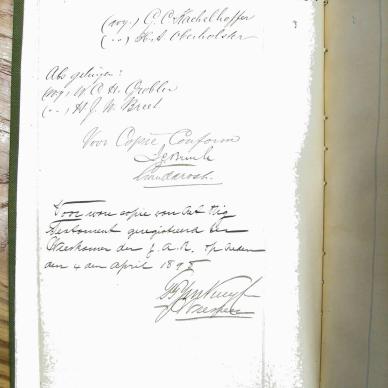 (wg.) C. C. Kachelhoffer
(,,) H. A. Oberholster
Als getuigen:
(wg.) W. A. H. Grobler
(,,) H. J. W. Breet
Voor Copie Conform
Voor ware copie van het
testament geregistreerd ter
Weeskamer der Z. A. R. op heden
den 4 den April 1898